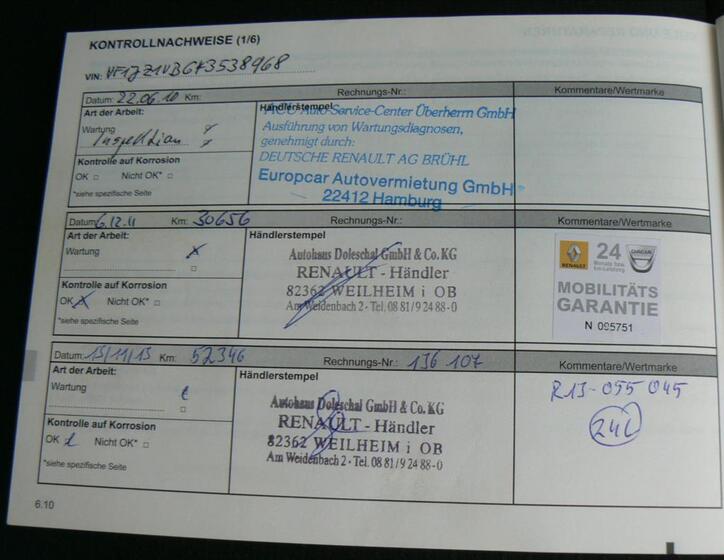 KONTROLLNACHWEISE (1/6)
VIN: VF1JZ1UBGK3538968
Datum: 22.06.10 Km: Rechnungs-Nr.: Kommentare/Wertmarke
Art der Arbeit:
Wartung
Inspektion
Kontrolle auf Korrosion
OK □ Nicht OK* □
*siehe spezifische Seite
Händlerstempel
Auto-Service-Center Überherrn GmbH
Ausführung von Wartungsdiagnosen,
genehmigt durch:
DEUTSCHE RENAULT AG BRÜHL
Europcar Autovermietung GmbH
22412 Hamburg
Datum: 6.12.11 Km: 30656 Rechnungs-Nr.: Kommentare/Wertmarke
Art der Arbeit:
Wartung x
□
Kontrolle auf Korrosion
OK x Nicht OK* □
*siehe spezifische Seite
Händlerstempel
Autohaus Doleschal GmbH & Co. KG
RENAULT - Händler
82362 WEILHEIM i OB
Am Weidenbach 2 - Tel. 08 81 / 9 24 88 - 0
RENAULT 24 DACIA
MOBILITÄTS
GARANTIE
N 095751
Datum: 15/11/13 Km: 52346 Rechnungs-Nr.: 136 107 Kommentare/Wertmarke
Art der Arbeit:
Wartung
□
Kontrolle auf Korrosion
OK Nicht OK* □
*siehe spezifische Seite
Händlerstempel
Autohaus Doleschal GmbH & Co. KG
RENAULT - Händler
82362 WEILHEIM i OB
Am Weidenbach 2 - Tel. 08 81 / 9 24 88 - 0
R13-055 045
24L
6.10